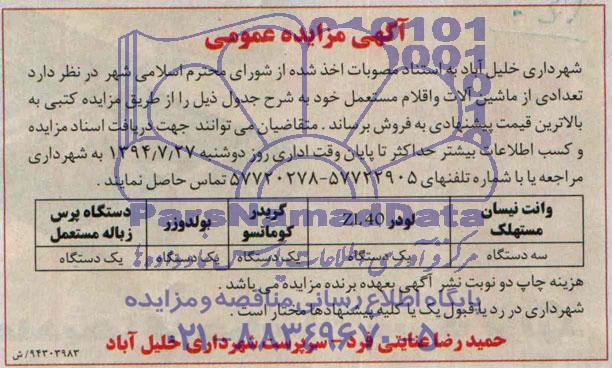 آگهی مزایده عمومی
شهرداری خلیل آباد به استناد مصوبات اخذ شده از شورای محترم اسلامی شهر در نظر دارد
تعدادی از ماشین آلات واقلام مستعمل خود به شرح جدول ذیل را از طریق مزایده کتبی به
بالاترین قیمت پیشنهادی به فروش برساند . متقاضیان می توانند جهت دریافت اسناد مزایده
و کسب اطلاعات بیشتر حداکثر تا پایان وقت اداری روز دوشنبه ۱۳۹۴/۷/۲۷ به شهرداری
مراجعه یا با شماره تلفنهای ۵۷۷۲۴۹۰۵-۵۷۷۲۰۲۷۸ تماس حاصل نمایند .
وانت نیسان مستهلک | لودر ZL40 | گریدر کوماتسو | بولدوزر | دستگاه پرس زباله مستعمل
سه دستگاه | یک دستگاه | یک دستگاه | یک دستگاه | یک دستگاه
هزینه چاپ دو نوبت نشر آگهی بعهده برنده مزایده می باشد .
شهرداری در رد یا قبول یک یا کلیه پیشنهادها مختار است .
حمید رضا عنایتی فرد - سرپرست شهرداری خلیل آباد
۹۴۳۰۳۹۸۳/ش
ParsNamadData
پایگاه اطلاع رسانی مناقصه و مزایده
۰۲۱-۸۸۳۴۹۶۷۰-۵